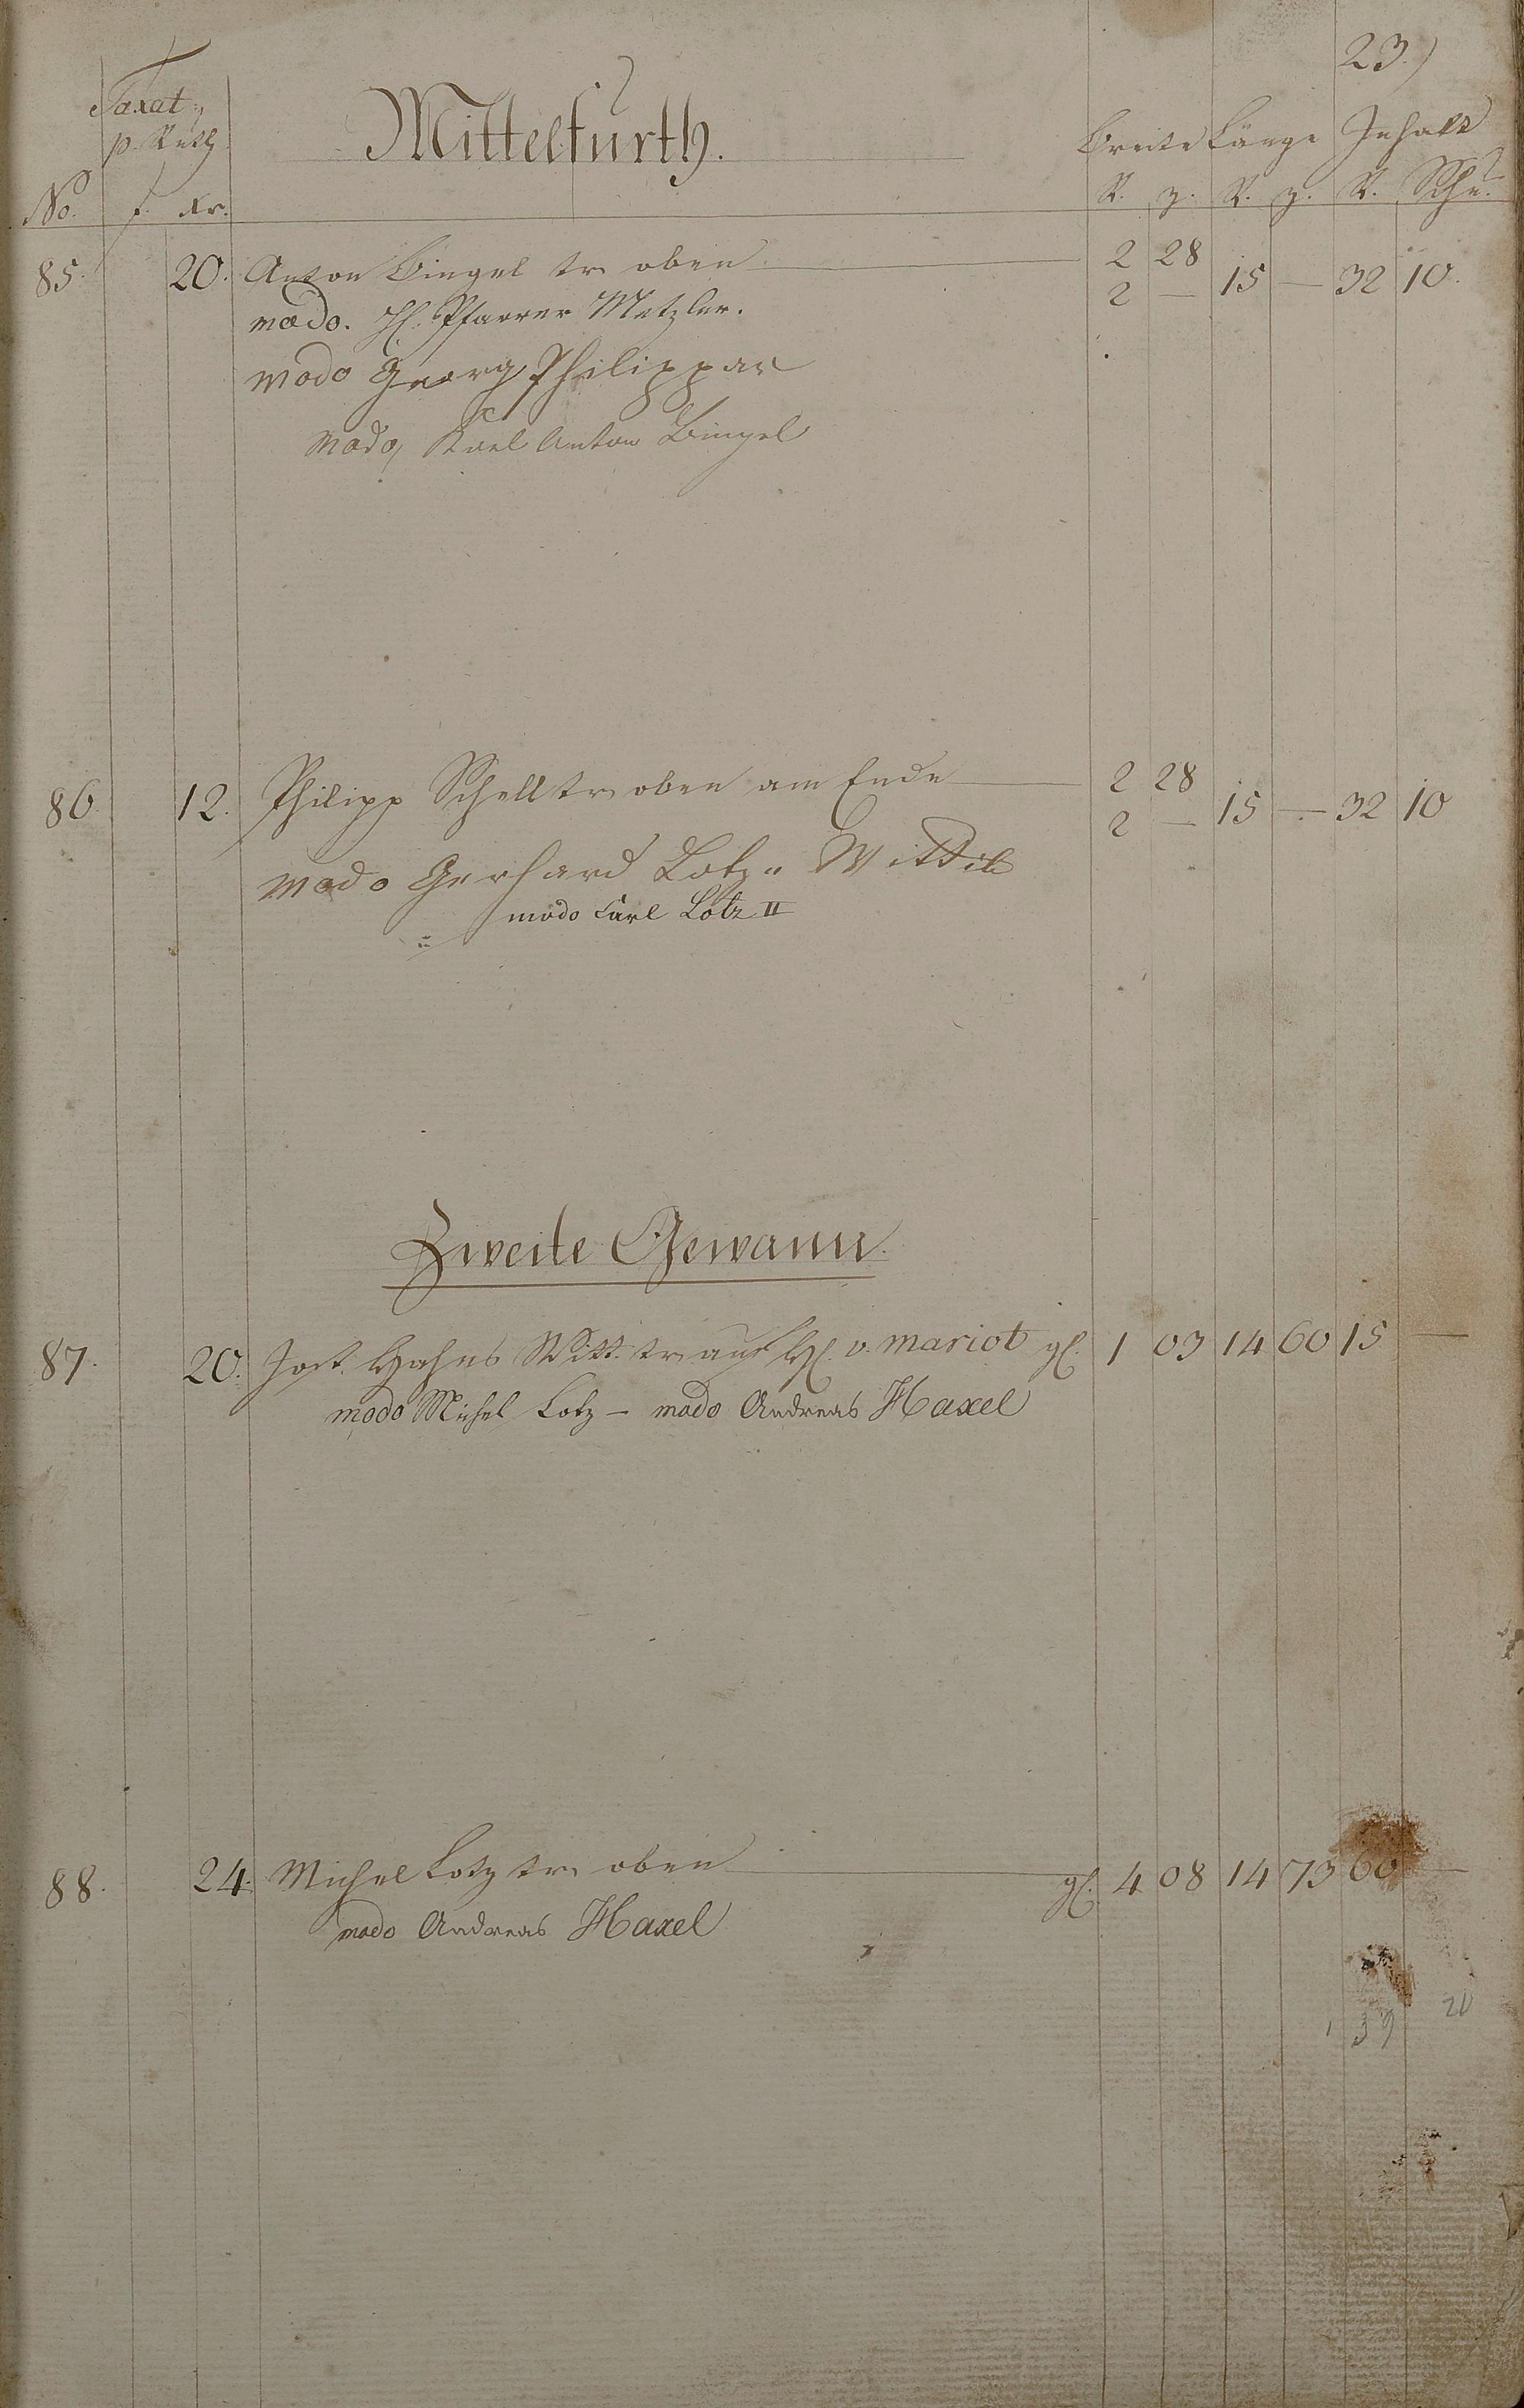 23.)
Taxat:
p. Ruth
Mittelfurth.
Breite Länge Inhalt
No. f. Xr. R. z. R. z. R. Schu.
85. 20. Anton Bingel tr. oben 2 28 15 — 32 10.
2 —
modo. H. Pfarrer Metzler.
modo Georg Philippar
modo, Karl Anton Bingel
86. 12. Philipp Schell tr. oben am Ende 2 28 15 — 32 10
2 —
modo Gerhard Lotz. Wittib
modo Carl Lotz II
Zweite Gewann.
87. 20. Jost. Hahns Witt. tr. auf H. v. Mariot gl. 1 03 14 60 15 —
modo Michel Lotz — modo Andreas Haxel
88. 24. Michel Lotz tr. oben gl. 4 08 14 73 60 —
modo Andreas Haxel
139 20